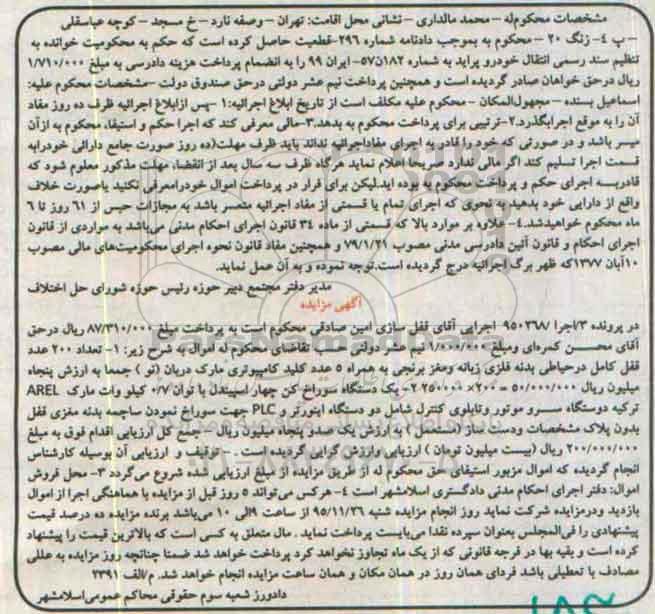 مشخصات محکوم‌له – محمد مالداری – نشانی محل اقامت: تهران – وصفه نارد – خ مسجد – کوچه عباسقلی
– پ ٤– زنگ ٢٠ – محکوم به بموجب دادنامه شماره ٢٩٦–قطعیت حاصل کرده است که حکم به محکومیت خوانده به
تنظیم سند رسمی انتقال خودرو پراید به شماره ١٨٢ن٥٧– ایران ٩٩ را به انضمام پرداخت هزینه دادرسی به مبلغ ١/٧١٠/٠٠٠
ریال درحق خواهان صادر گردیده است و همچنین پرداخت نیم عشر دولتی درحق صندوق دولت –مشخصات محکوم علیه:
اسماعیل بسنده – مجهول‌المکان – محکوم علیه مکلف است از تاریخ ابلاغ اجرائیه: ١ –پس ازابلاغ اجرائیه ظرف ده روز مفاد
آن را به موقع اجرابگذرد.٢–ترتیبی برای پرداخت محکوم به بدهد.٣–مالی معرفی کند که اجرا حکم و استیفاء محکوم به ازآن
میسر باشد و در صورتی که خود را قادر به اجرای مفاداجرائیه نداند باید ظرف مهلت(ده روز صورت جامع دارائی خودرابه
قسمت اجرا تسلیم کند اگر مالی ندارد صریحا اعلام نماید هرگاه ظرف سه سال بعد از انقضاء مهلت مذکور معلوم شود که
قادربه اجرای حکم و پرداخت محکوم به بوده اید.لیکن برای فرار در پرداخت اموال خودرامعرفی نکنید یاصورت خلاف
واقع از دارایی خود بدهید به نحوی که اجرای تمام یا قسمتی از مفاد اجرائیه متعسر باشد به مجازات حبس از ٦١ روز تا ٦
ماه محکوم خواهیدشد.٤– علاوه بر موارد بالا که قسمتی از ماده ٣٤ قانون اجرای احکام مدنی می‌باشد به مواردی از قانون
اجرای احکام و قانون آئین دادرسی مدنی مصوب ٧٩/١/٢١ و همچنین مفاد قانون نحوه اجرای محکومیت‌های مالی مصوب
١٠آبان ١٣٧٧که ظهر برگ اجرائیه درج گردیده است.توجه نموده و به آن عمل نماید.
مدیر دفتر مجتمع دبیر حوزه رئیس حوزه شورای حل اختلاف
آگهی مزایده
در پرونده ٣/اجرا /٩٥٠٣٦٨ اجرایی آقای قفل سازی امین صادقی محکوم است به پرداخت مبلغ ٨٧/٣١٠/٠٠٠ ریال درحق
آقای محسن کمره‌ای ومبلغ ١/٠٠٠/٠٠٠ نیم عشر دولتی حسب تقاضای محکوم له اموال به شرح زیر: ١– تعداد ٢٠٠ عدد
قفل کامل درحیاطی بدنه فلزی زبانه ومغز برنجی به همراه ٥ عدد کلید کامپیوتری مارک دربان (نو ) جمعا به ارزش پنجاه
میلیون ریال ٥٠/٠٠٠/٠٠٠ = ٢٠٠× ٢٥٠٠٠٠ ٢– یک دستگاه سوراخ کن چهار اسپیندل با توان ٠/٧ کیلو وات مارک AREL
ترکیه دودستگاه سرو موتور وتابلوی کنترل شامل دو دستگاه اینورتر و PLC جهت سوراخ نمودن ساچمه بدنه مغزی قفل
بدون پلاک مشخصات ودست ساز (مستعمل ) به ارزش یک صدو پنجاه میلیون ریال – جمع کل ارزیابی اقدام فوق به مبلغ
٢٠٠/٠٠٠/٠٠٠ ریال (بیست میلیون تومان ) ارزیابی وارزش گرایی گردیده است . – توقیف و ارزیابی آن بوسیله کارشناس
انجام گردیده که اموال مزبور استیفای حق محکوم له از طریق مزایده از مبلغ ارزیابی شده شروع می‌گردد ٣– محل فروش
اموال: دفتر اجرای احکام مدنی دادگستری اسلامشهر است ٤– هرکس می‌تواند ٥ روز قبل از مزایده با هماهنگی اجرا از اموال
بازدید ودرمزایده شرکت نماید روز انجام مزایده شنبه ٩٥/١١/٢٦ از ساعت ٩الی ١٠ می‌باشد برنده مزایده ده درصد قیمت
پیشنهادی را فی‌المجلس بعنوان سپرده نقدا می‌بایست پرداخت نماید . مال متعلق به کسی است که بالاترین قیمت را پیشنهاد
کرده است و بقیه بها در فرجه قانونی که از یک ماه تجاوز نخواهد کرد پرداخت خواهد شد ضمنا چنانچه روز مزایده به عللی
مصادف با تعطیلی باشد فردای همان روز در همان مکان و همان ساعت مزایده انجام خواهد شد. م/الف ٢٣٩١
دادورز شعبه سوم حقوقی محاکم عمومی‌اسلامشهر
ParsNamadData